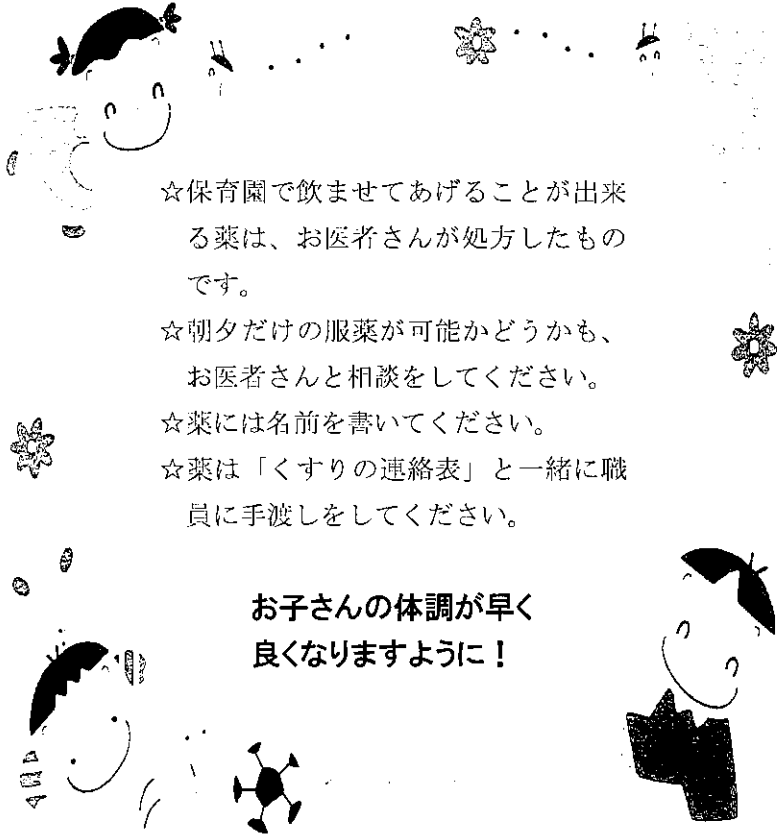 ☆保育園で飲ませてあげることが出来
る薬は、お医者さんが処方したもの
です。
☆朝夕だけの服薬が可能かどうかも、
お医者さんと相談をしてください。
☆薬には名前を書いてください。
☆薬は「くすりの連絡表」と一緒に職
員に手渡しをしてください。
お子さんの体調が早く
良くなりますように！